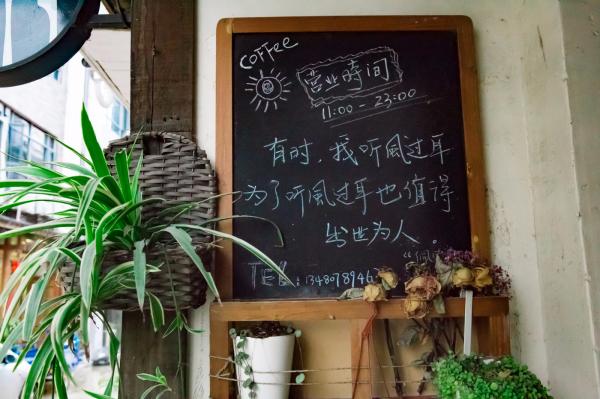 coffee
营业时间
11:00 - 23:00
有时，我听風过耳
为了听風过耳也值得
出世为人。
TEL: 1348789462